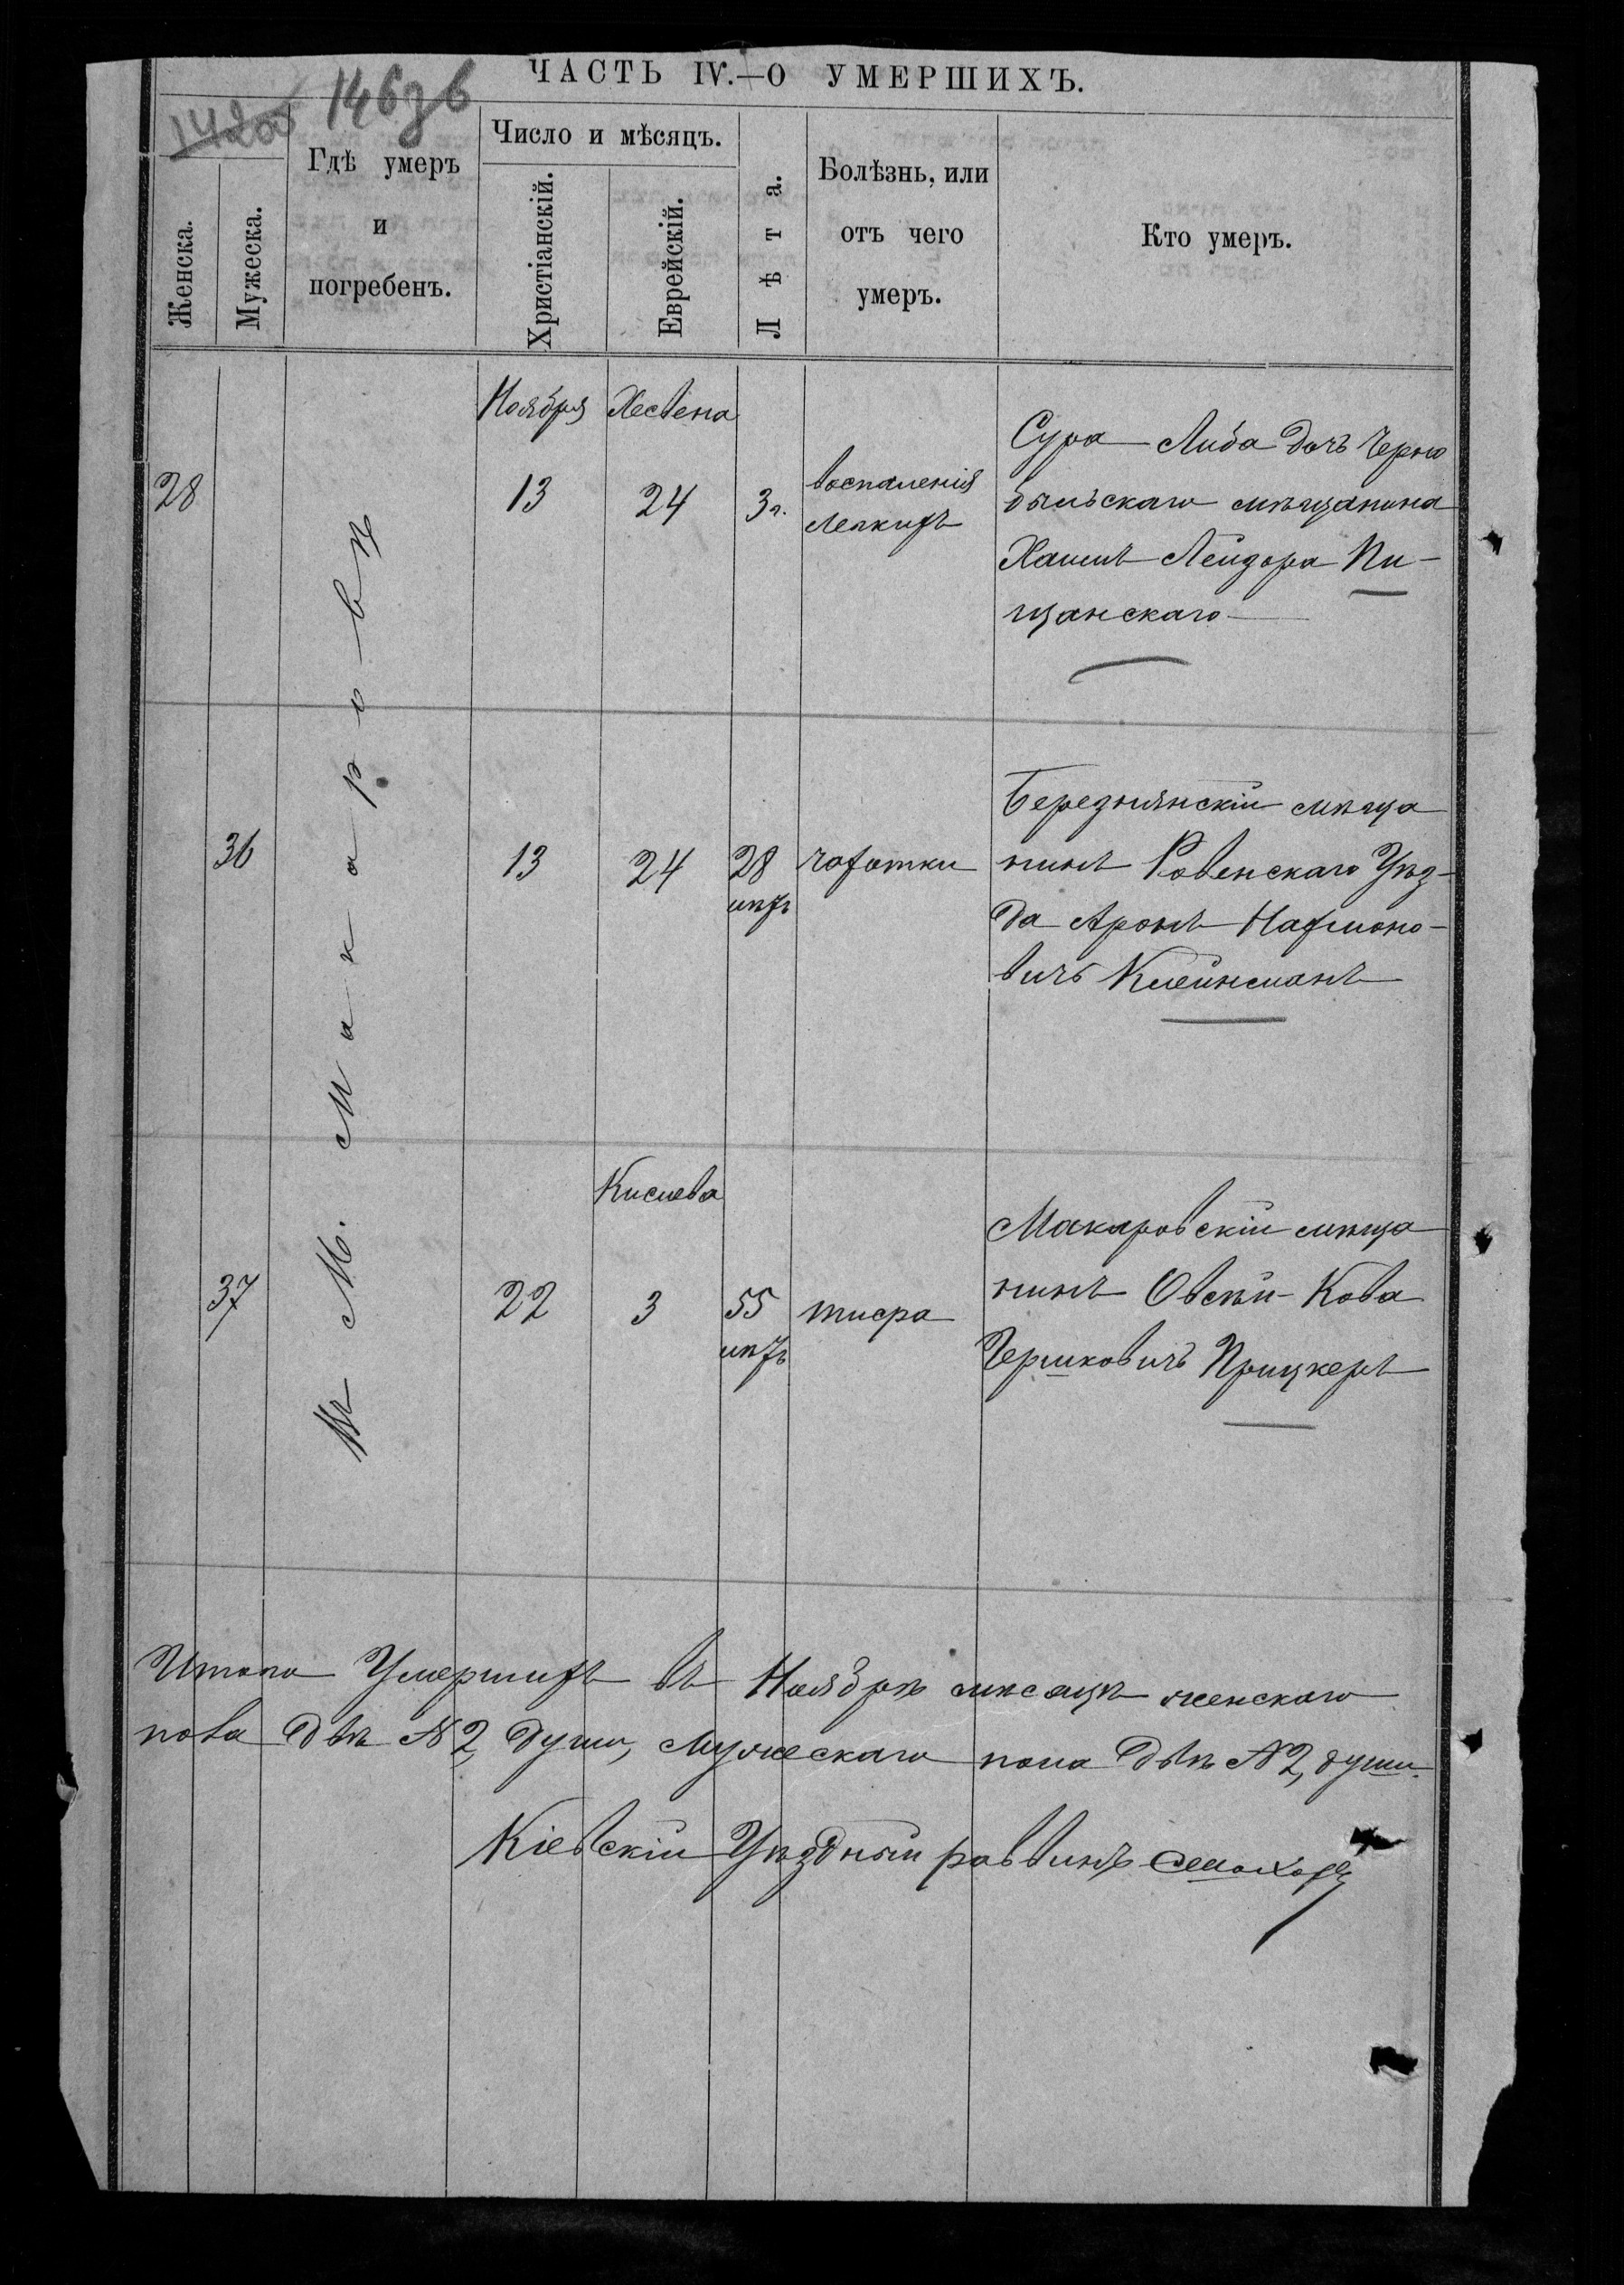 ЧАСТЬ IV.—О УМЕРШИХЪ.
146зв
Женска.
Мужеска.
Гдѣ умеръ
и
погребенъ.
Число и мѣсяцъ.
Христіанскій.
Еврейскій.
Лѣта.
Болѣзнь, или
отъ чего
умеръ.
Кто умеръ.
М. Макаровъ
Ноября Хесвена
28 13 24 3 г.
воспаленія
легкихъ
Сура Либа дочъ Черно
быльскаго мѣщанина
Хаимъ Лейзора Пи-
щанскаго
36 13 24 28
лѣтъ
чахотки
Березнянскій мѣща
нинъ Ровенскаго Уѣз-
да Аронъ Нафмоно-
вичъ Клейнманъ
Кислева
37 22 3 55
лѣтъ
тифа
Макаровскій мѣща
нинъ Овсѣй Кова
Гершковичъ Прицкеръ
Итого Умершихъ въ Ноябрѣ мѣсяцѣ женскаго
пола двѣ № 2, души, мужескаго пола двѣ № 2, души.
Кіевскій Уѣздный раввинъ